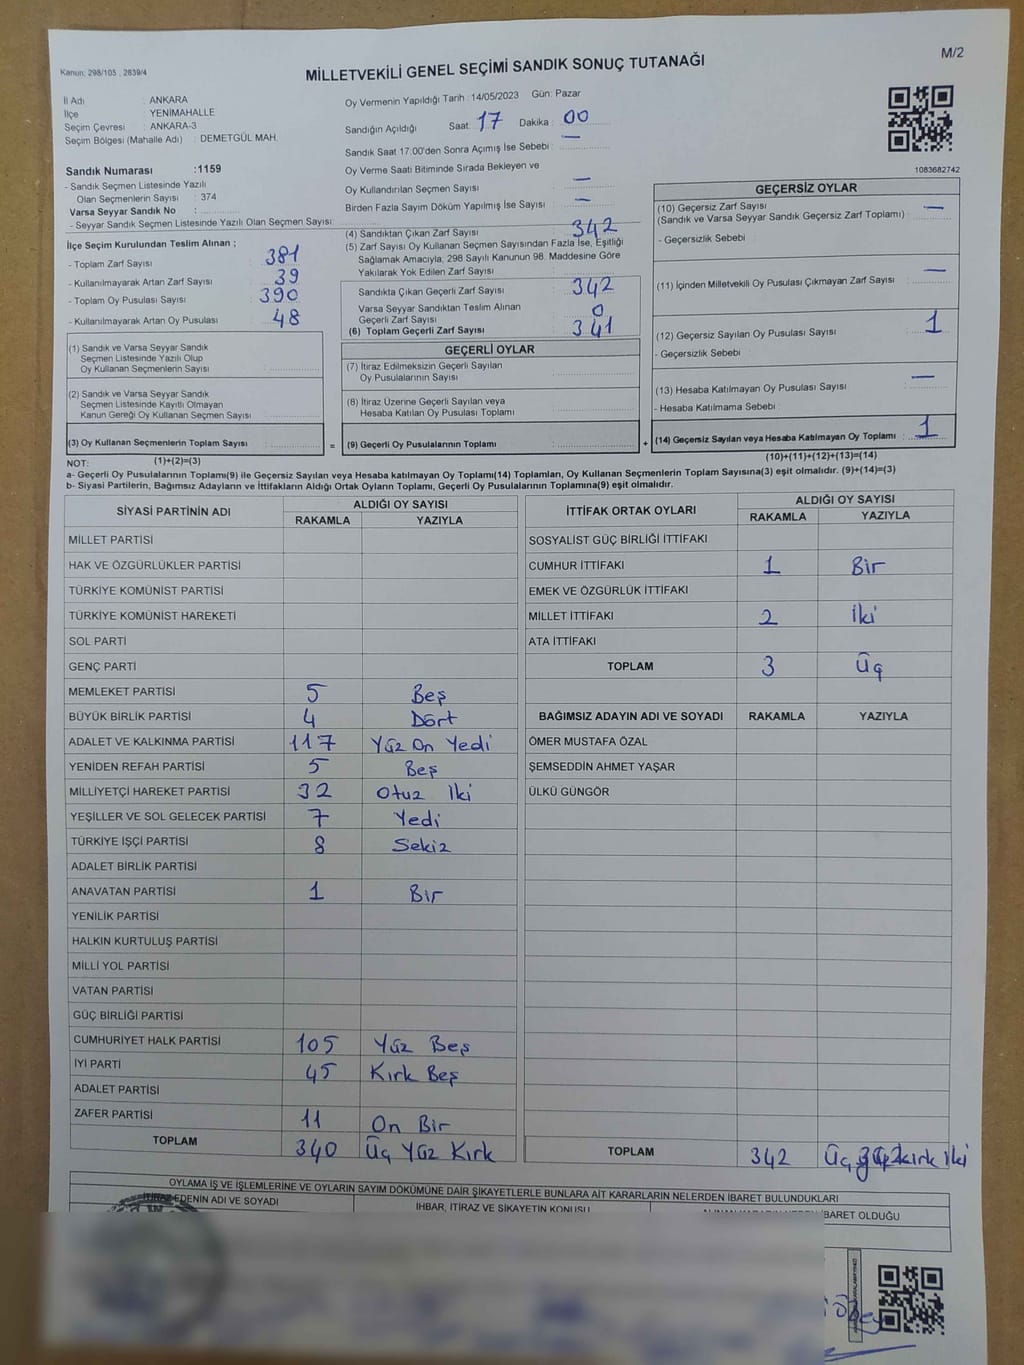 Kanun; 298/105 , 2839/4
MİLLETVEKİLİ GENEL SEÇİMİ SANDIK SONUÇ TUTANAĞI
M/2
İl Adı : ANKARA
İlçe : YENİMAHALLE
Seçim Çevresi : ANKARA-3
Seçim Bölgesi (Mahalle Adı) : DEMETGÜL MAH.
Oy Vermenin Yapıldığı Tarih : 14/05/2023 Gün: Pazar
Sandığın Açıldığı Saat: 17 Dakika : 00
Sandık Saat 17:00'den Sonra Açımış İse Sebebi :
Oy Verme Saati Bitiminde Sırada Bekleyen ve
Oy Kullandırılan Seçmen Sayısı : —
Birden Fazla Sayım Döküm Yapılmış İse Sayısı : —
1083682742
Sandık Numarası :1159
- Sandık Seçmen Listesinde Yazılı
Olan Seçmenlerin Sayısı : 374
Varsa Seyyar Sandık No :
- Seyyar Sandık Seçmen Listesinde Yazılı Olan Seçmen Sayısı:
İlçe Seçim Kurulundan Teslim Alınan ;
- Toplam Zarf Sayısı : 381
- Kullanılmayarak Artan Zarf Sayısı : 39
- Toplam Oy Pusulası Sayısı : 390
- Kullanılmayarak Artan Oy Pusulası : 48
(1) Sandık ve Varsa Seyyar Sandık
Seçmen Listesinde Yazılı Olup
Oy Kullanan Seçmenlerin Sayısı :
(2) Sandık ve Varsa Seyyar Sandık
Seçmen Listesinde Kayıtlı Olmayan
Kanun Gereği Oy Kullanan Seçmen Sayısı :
(3) Oy Kullanan Seçmenlerin Toplam Sayısı :
(4) Sandıktan Çıkan Zarf Sayısı : 342
(5) Zarf Sayısı Oy Kullanan Seçmen Sayısından Fazla İse, Eşitliği
Sağlamak Amacıyla; 298 Sayılı Kanunun 98. Maddesine Göre
Yakılarak Yok Edilen Zarf Sayısı :
Sandıkta Çıkan Geçerli Zarf Sayısı : 342
Varsa Seyyar Sandıktan Teslim Alınan
Geçerli Zarf Sayısı : 0
(6) Toplam Geçerli Zarf Sayısı : 341
GEÇERLİ OYLAR
(7) İtiraz Edilmeksizin Geçerli Sayılan
Oy Pusulalarının Sayısı :
(8) İtiraz Üzerine Geçerli Sayılan veya
Hesaba Katılan Oy Pusulası Toplamı :
= (9) Geçerli Oy Pusulalarının Toplamı :
GEÇERSİZ OYLAR
(10) Geçersiz Zarf Sayısı : —
(Sandık ve Varsa Seyyar Sandık Geçersiz Zarf Toplamı)
- Geçersizlik Sebebi :
(11) İçinden Milletvekili Oy Pusulası Çıkmayan Zarf Sayısı : —
(12) Geçersiz Sayılan Oy Pusulası Sayısı : 1
- Geçersizlik Sebebi :
(13) Hesaba Katılmayan Oy Pusulası Sayısı : —
- Hesaba Katılmama Sebebi :
+ (14) Geçersiz Sayılan veya Hesaba Katılmayan Oy Toplamı : 1
NOT: (1)+(2)=(3)
(10)+(11)+(12)+(13)=(14)
a- Geçerli Oy Pusulalarının Toplamı(9) ile Geçersiz Sayılan veya Hesaba katılmayan Oy Toplamı(14) Toplamları, Oy Kullanan Seçmenlerin Toplam Sayısına(3) eşit olmalıdır. (9)+(14)=(3)
b- Siyasi Partilerin, Bağımsız Adayların ve İttifakların Aldığı Ortak Oyların Toplamı, Geçerli Oy Pusulalarının Toplamına(9) eşit olmalıdır.
SİYASİ PARTİNİN ADI ALDIĞI OY SAYISI
RAKAMLA YAZIYLA
MİLLET PARTİSİ
HAK VE ÖZGÜRLÜKLER PARTİSİ
TÜRKİYE KOMÜNİST PARTİSİ
TÜRKİYE KOMÜNİST HAREKETİ
SOL PARTİ
GENÇ PARTİ
MEMLEKET PARTİSİ 5 Beş
BÜYÜK BİRLİK PARTİSİ 4 Dört
ADALET VE KALKINMA PARTİSİ 117 Yüz On Yedi
YENİDEN REFAH PARTİSİ 5 Beş
MİLLİYETÇİ HAREKET PARTİSİ 32 Otuz İki
YEŞİLLER VE SOL GELECEK PARTİSİ 7 Yedi
TÜRKİYE İŞÇİ PARTİSİ 8 Sekiz
ADALET BİRLİK PARTİSİ
ANAVATAN PARTİSİ 1 Bir
YENİLİK PARTİSİ
HALKIN KURTULUŞ PARTİSİ
MİLLİ YOL PARTİSİ
VATAN PARTİSİ
GÜÇ BİRLİĞİ PARTİSİ
CUMHURİYET HALK PARTİSİ 105 Yüz Beş
İYİ PARTİ 45 Kırk Beş
ADALET PARTİSİ
ZAFER PARTİSİ 11 On Bir
TOPLAM 340 Üç Yüz Kırk
İTTİFAK ORTAK OYLARI ALDIĞI OY SAYISI
RAKAMLA YAZIYLA
SOSYALİST GÜÇ BİRLİĞİ İTTİFAKI
CUMHUR İTTİFAKI 1 Bir
EMEK VE ÖZGÜRLÜK İTTİFAKI
MİLLET İTTİFAKI 2 İki
ATA İTTİFAKI
TOPLAM 3 Üç
BAĞIMSIZ ADAYIN ADI VE SOYADI RAKAMLA YAZIYLA
ÖMER MUSTAFA ÖZAL
ŞEMSEDDİN AHMET YAŞAR
ÜLKÜ GÜNGÖR
TOPLAM 342 Üç kırk İki
OYLAMA İŞ VE İŞLEMLERİNE VE OYLARIN SAYIM DÖKÜMÜNE DAİR ŞİKAYETLERLE BUNLARA AİT KARARLARIN NELERDEN İBARET BULUNDUKLARI
İTİRAZ EDENİN ADI VE SOYADI
İHBAR, İTİRAZ VE ŞİKAYETİN KONUSU
İBARET OLDUĞU